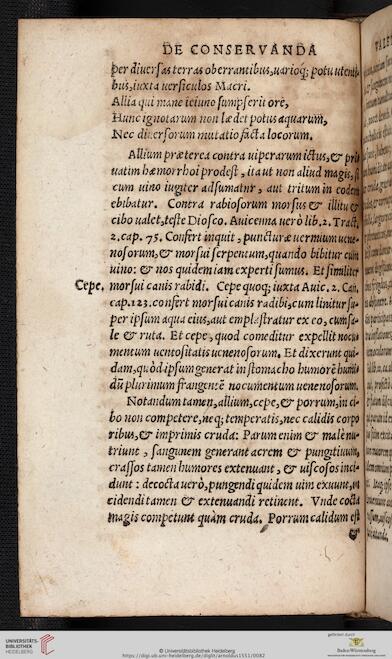 DE CONSERVANDA
per diuersas terras oberrantibus, uarioq; potu utenti-
bus, iuxta uersiculos Macri.
Allia qui mane ieiuno sumpserit ore,
Hunc ignotarum non lædet potus aquarum,
Nec diuersorum mutatio facta locorum.
Allium præterea contra uiperarum ictus, & pri
uatim hæmorrhoi prodest, ita ut non aliud magis, si
cum uino iugiter adsumatur, aut tritum in eodem
ebibatur. Contra rabiosorum morsus & illitu &
cibo ualet, teste Diosco. Auicenna uerò lib. 2. Tract.
2. cap. 75. Confert inquit, puncturæ uermium uene-
nosorum, & morsui serpentum, quando bibitur cum
uino: & nos quidem iam experti sumus. Et similiter
Cepe. morsui canis rabidi. Cepe quoq; iuxta Auic. 2. Can.
cap. 123. confert morsui canis radibi, cum linitur su-
per ipsum aqua eius, aut emplastratur ex eo, cum sa-
le & ruta. Et cepe, quod comeditur expellit nocu-
mentum uentositatis uenenosorum. Et dixerunt qui-
dam, quòd ipsum generat in stomacho humorē humi-
dū plurimum frangentē nocumentum uenenosorum.
Notandum tamen, allium, cepe, & porrum, in ci-
bo non competere, neq; temperatis, nec calidis corpo
ribus, & imprimis cruda: Parum enim & malè nu-
triunt, sanguinem generant acrem & pungitiuum,
crassos tamen humores extenuant, & uiscosos inci-
dunt: decocta uerò, pungendi quidem uim exuunt, in
cidendi tamen & extenuandi retinent. Vnde cocta
magis competunt quàm cruda. Porrum calidum est
&
UNIVERSITÄTS-
BIBLIOTHEK
HEIDELBERG
© Universitätsbibliothek Heidelberg
https://digi.ub.uni-heidelberg.de/diglit/arnoldus1551/0082
gefördert durch
Baden-Württemberg